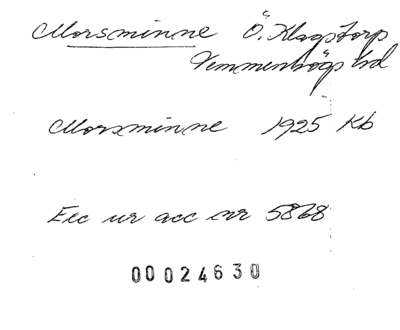 Morsminne Ö. Klagstorp
Vemmenhögs hd
Morsminne 1925 Kb
Exc ur acc nr 5868
00024630